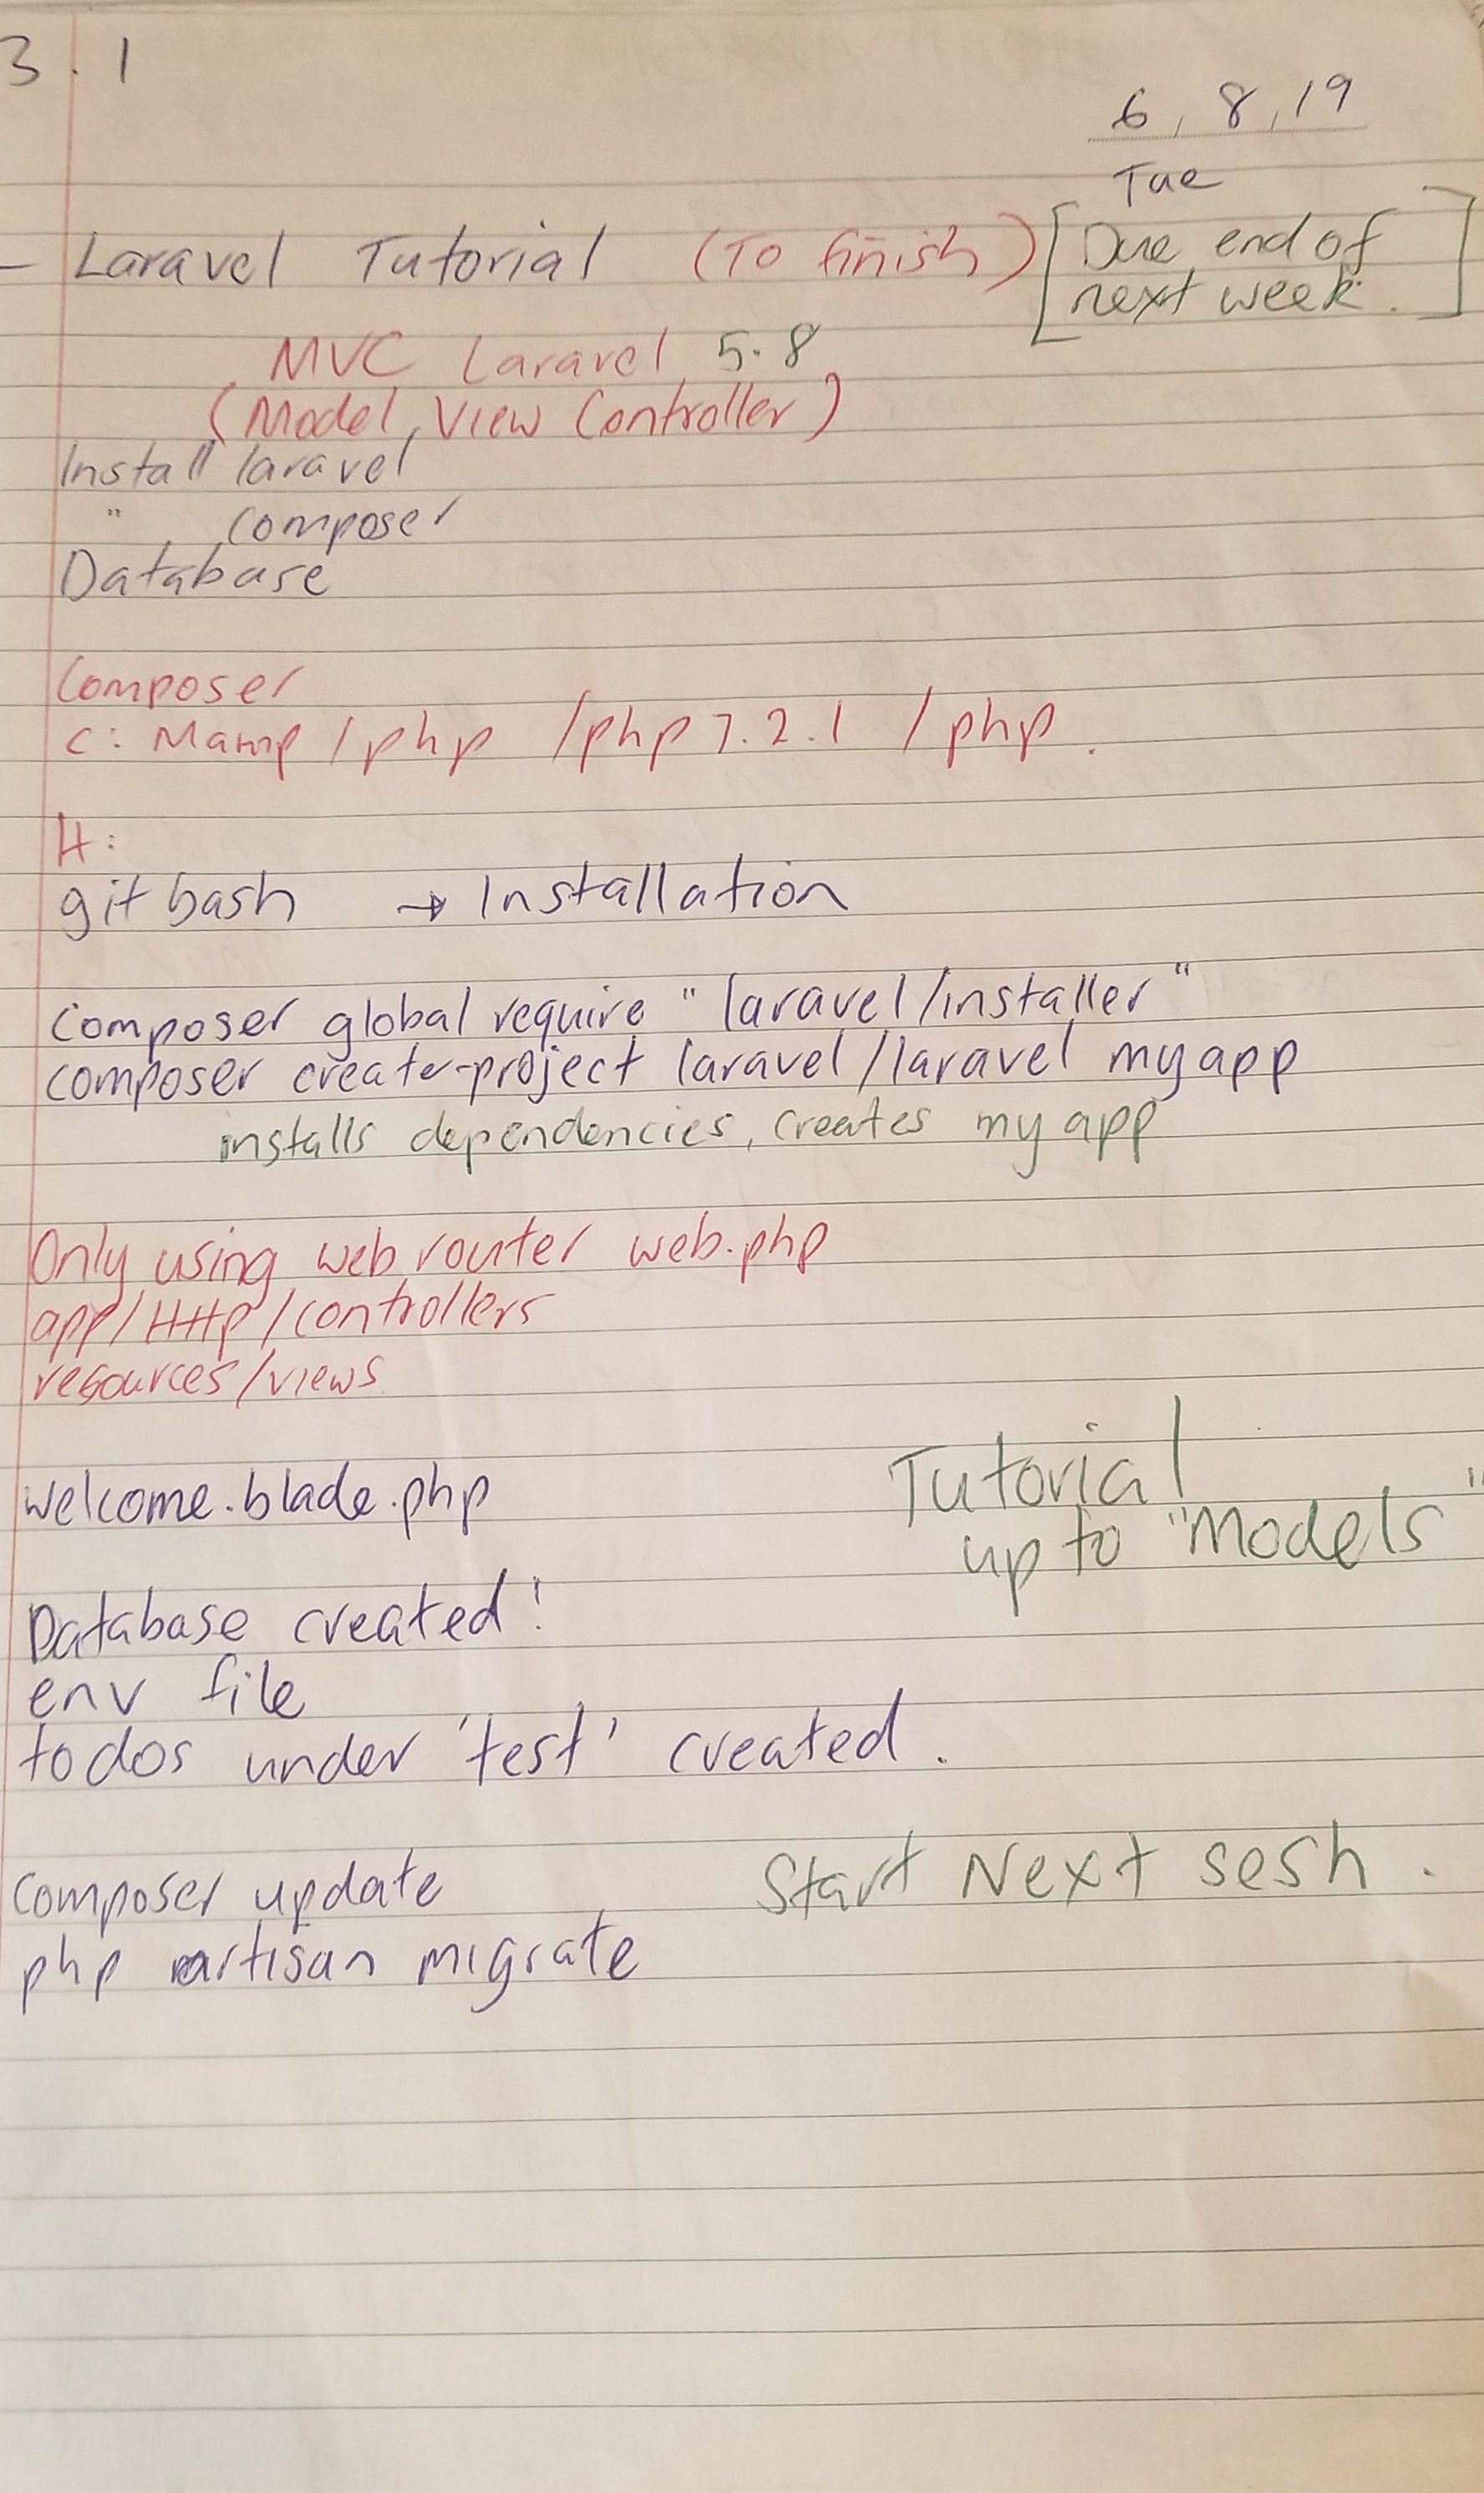 3.1
6, 8, 19
Tue
- Laravel Tutorial (To finish) [Due end of next week.]
MVC Laravel 5.8
(Model, View Controller)
Install laravel
" composer
Database
Composer
C: Mamp / php / php 7.2.1 / php.
H:
git bash → Installation
Composer global require "laravel/installer"
composer create-project laravel/laravel myapp
installs dependencies, creates my app
Only using web router web.php
app/Http/controllers
resources/views
welcome.blade.php
Tutorial
up to "Models"
Database created!
env file
todos under 'test' created.
Start Next sesh.
Composer update
php artisan migrate